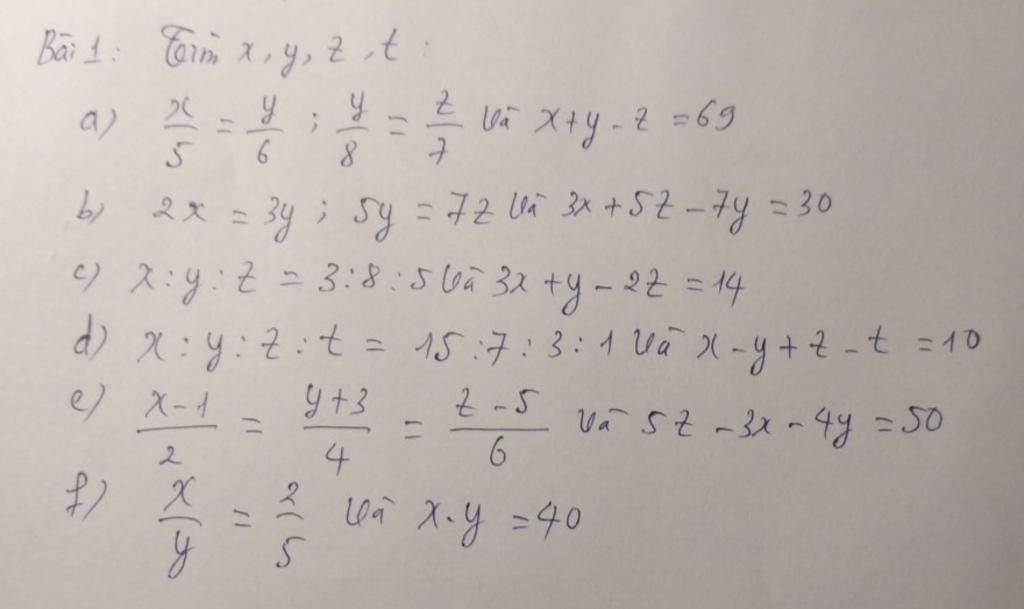 Bài 1: Tìm x, y, z, t:
a) x/5 = y/6 ; y/8 = z/7 và x+y-z = 69
b) 2x = 3y ; 5y = 7z và 3x+5z-7y = 30
c) x:y:z = 3:8:5 và 3x+y-2z = 14
d) x:y:z:t = 15:7:3:1 và x-y+z-t = 10
e) (x-1)/2 = (y+3)/4 = (z-5)/6 và 5z-3x-4y = 50
f) x/y = 2/5 và x.y = 40